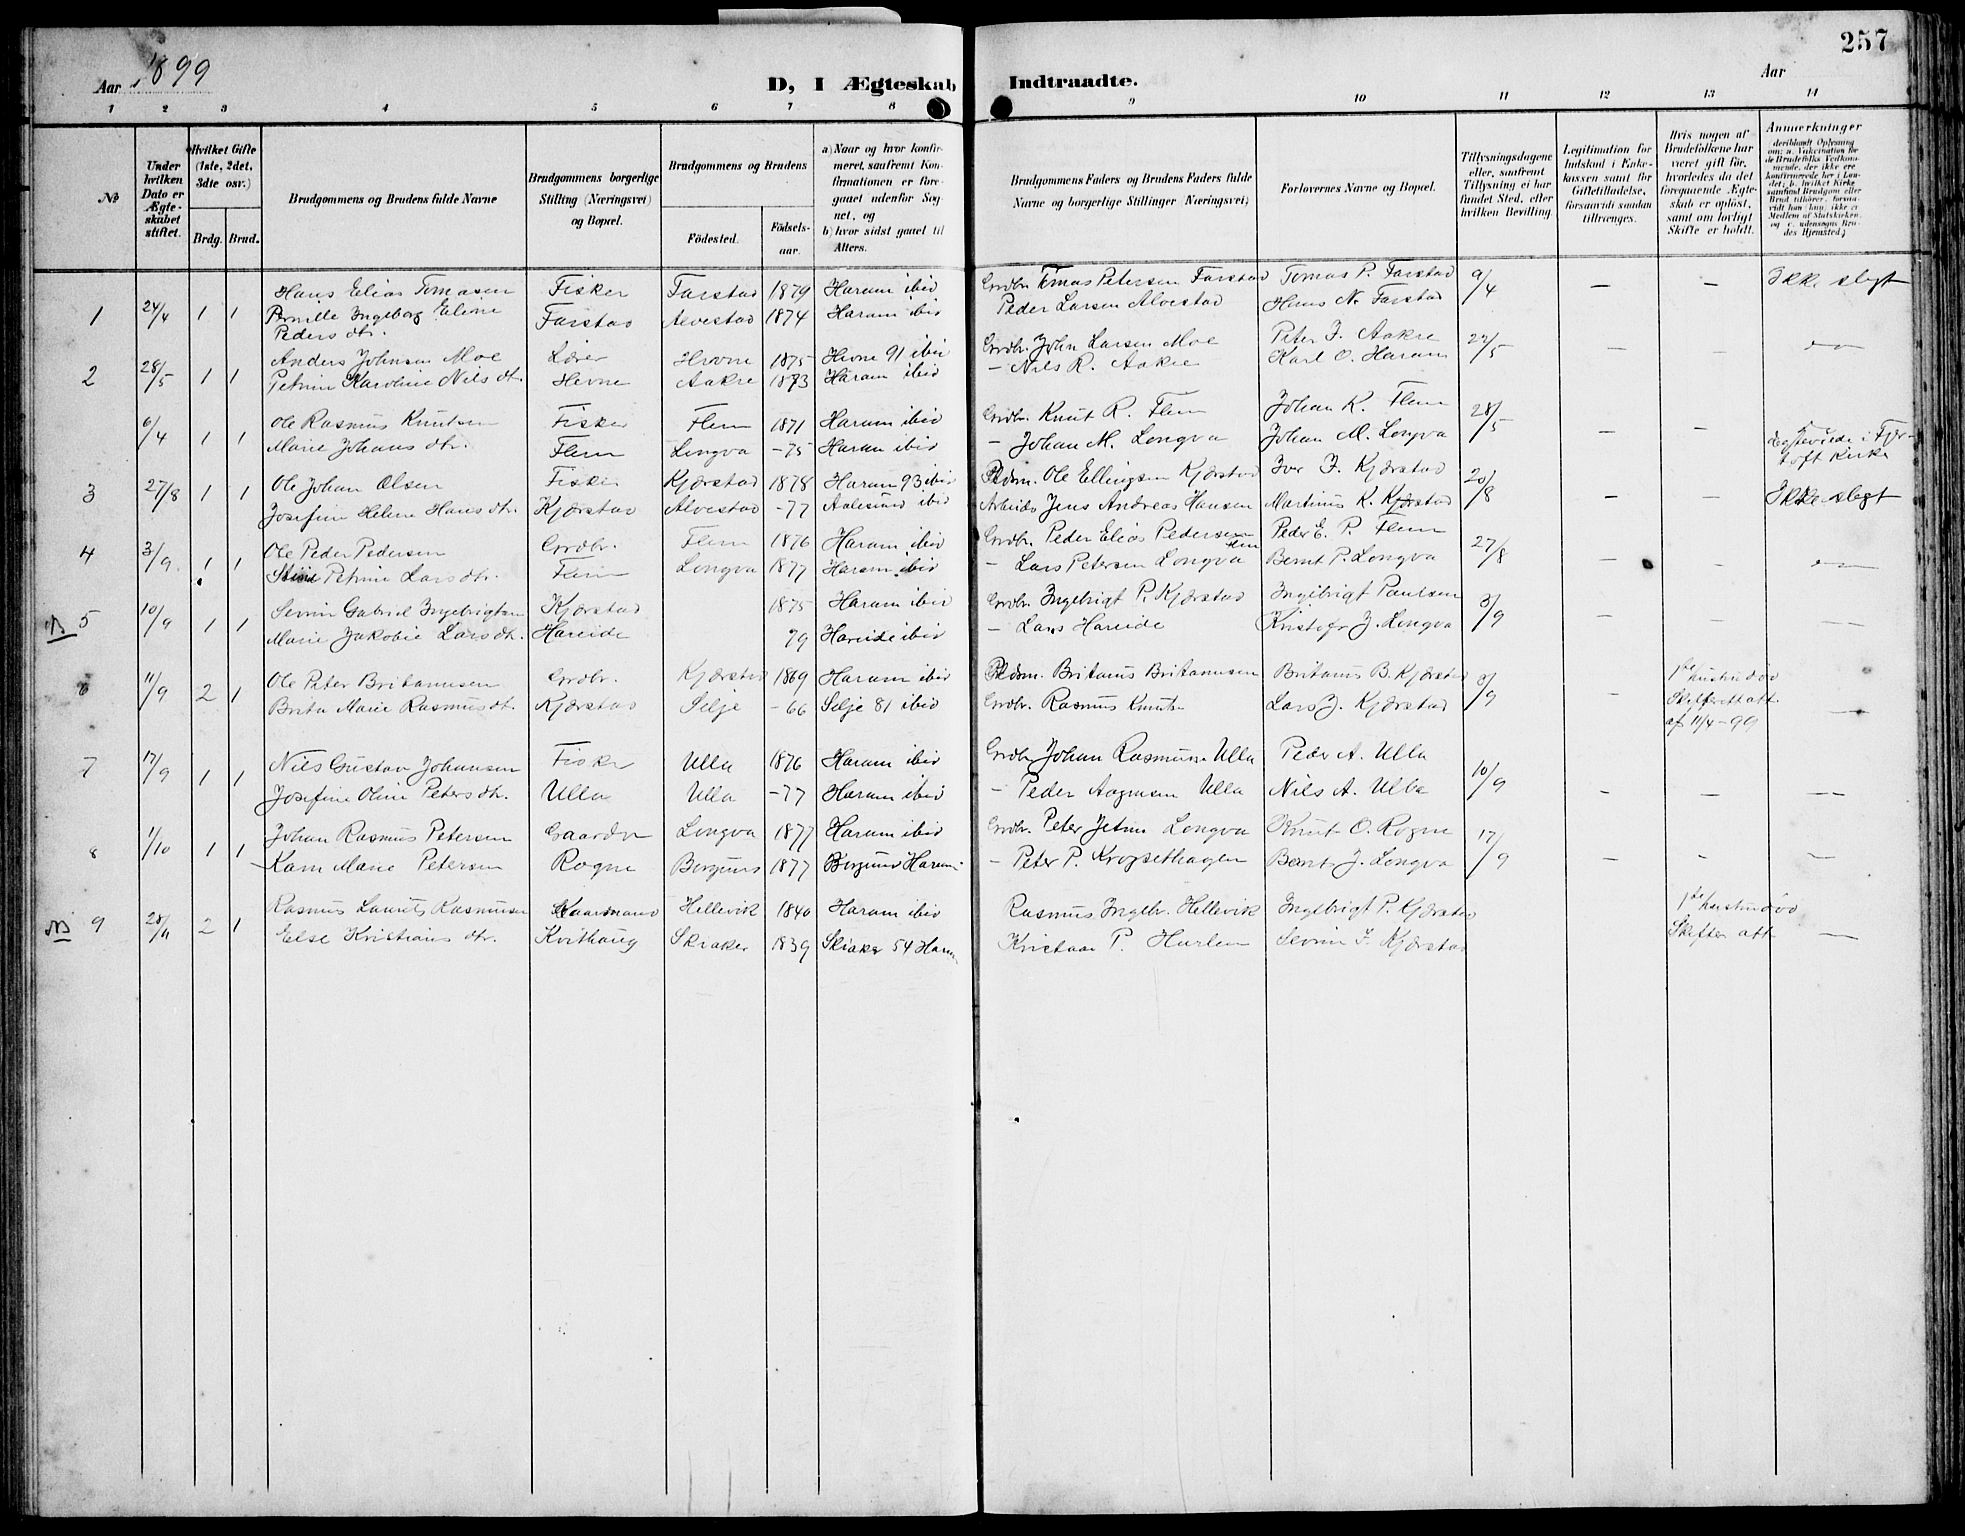 257
Aar 1899
D, I Ægteskab Indtraadte.
Aar
1 2 3 4 5 6 7 8 9 10 11 12 13 14
№
Under hvilken Dato er Ægteskabet stiftet.
Hvilket Gifte (1ste, 2det, 3dte osv.)
Brdg. Brud.
Brudgommens og Brudens fulde Navne
Brudgommens borgerlige Stilling (Næringsvei) og Bopæl.
Brudgommens og Brudens
Fødested. Fødsels-aar.
a) Naar og hvor konfirmeret, saafremt Konfirmationen er foregaaet udenfor Sognet, og
b) hvor sidst gaaet til Alters.
Brudgommens Faders og Brudens Faders fulde Navne og borgerlige Stillinger Næringsvei)
Forlovernes Navne og Bopæl.
Tillysningsdagene eller, saafremt Tillysning ei har fundet Sted, efter hvilken Bevilling.
Legitimation for Indskud i Enkekassen samt for Giftetilladelse, forsaavidt saadan tiltrænges.
Hvis nogen af Brudefolkene har været gift før, hvorledes da det foregaaende Ægteskab er opløst, samt om lovligt Skifte er holdt.
Anmerkninger
1 24/4 1 1 Hans Elias Tomasen Fisker Farstad 1879 Haram ibid Grdbr. Tomas Petersen Farstad Tomas P. Farstad 9/4 — — Ikk. slegt
Pernille Ingeborg Eline Farstad Alvestad 1874 Haram ibid Peder Larsen Alvestad Hans N. Farstad
Peders dtr.
2 28/5 1 1 Anders Johnsen Moe Lærer Hevne 1875 Hevne 91 ibid Grdbr. John Larsen Moe Peter J. Aakre 24/5 — — do
Petrine Karoline Nils dtr. Hevne Aakre 1873 Haram ibid — Nils R. Aakre Karl O. Haram
6/4 1 1 Ole Rasmus Knutsen Fisker Flem 1871 Haram ibid Grdbr. Knut R. Flem Johan K. Flem 28/5 — —
Marie Johans dtr. Flem Longva -75 Haram ibid — Johan M. Longva Johan M. Longva Egteviede i Fjær-
toft kirke
3 27/8 1 1 Ole Johan Olsen Fisker Kjærstad 1878 Haram 93 ibid Pldsm. Ole Ellingsen Kjærstad Iver J. Kjærstad 20/8 — — Ikke slegt
Josefine Helene Hans dtr. Kjærstad Alvestad -77 Aalesund ibid Arbeids Jens Andreas Hansen Martinus K. Kjærstad
4 3/9 1 1 Ole Peder Pedersen Grdbr. Flem 1876 Haram ibid Grdbr. Peder Elias Pedersen Flem Peder E. P. Flem 27/8 — — do
Petrine Lars dtr. Flem Longva 1877 Haram ibid — Lars Petersen Longva Bernt P. Longva
N 5 10/9 1 1 Sevrin Gabriel Ingebrigtsen Kjærstad 1875 Haram ibid Grdbr. Ingebrigt P. Kjærstad Ingebrigt Paulsen 3/9 — —
Marie Jakobie Lars dtr. Hareide 79 Hareide ibid — Lars Hareide Kristofr J. Longva
6 11/9 2 1 Ole Peter Britanusen Grdbr. Kjærstad 1869 Haram ibid Pldsm. Britanus Britanusen Britanus B. Kjærstad 3/9 — 1ste hustru død
Brita Marie Rasmus dt. Kjærstad Selje -66 Selje 81 ibid Grdbr. Rasmus Knuts Lars J. Kjærstad Skifterett att.
af 11/4-99
7 17/9 1 1 Nils Gustav Johansen Fisker Ulla 1876 Haram ibid Grdbr Johan Rasmusen Ulla Peder A. Ulla 10/9 — —
Josefine Oline Peters dtr. Ulla Ulla -77 Haram ibid — Peder Aagesen Ulla Nils A. Ulla
8 1/10 1 1 Johan Rasmus Petersen Gaardbr Longva 1877 Haram ibid Grdbr. Peter Longva Knut O. Rogne 17/9 — —
Karn Marie Petersen Rogne Borgund 1877 Borgund Haram — Peter P. Kropsethagen Bernt J. Longva
N 9 28/11 2 1 Rasmus Laurits Rasmusen Gaardmand Hellevik 1840 Haram ibid Rasmus Ingebr. Hellevik Ingebrigt P. Kjærstad 1ste hustru død
Else Kristians dtr. Kvithaug Skiaker 1839 Skiaker 54 Haram Kristian P. Hurlen Sevrin J. Kjærstad Skifter att —